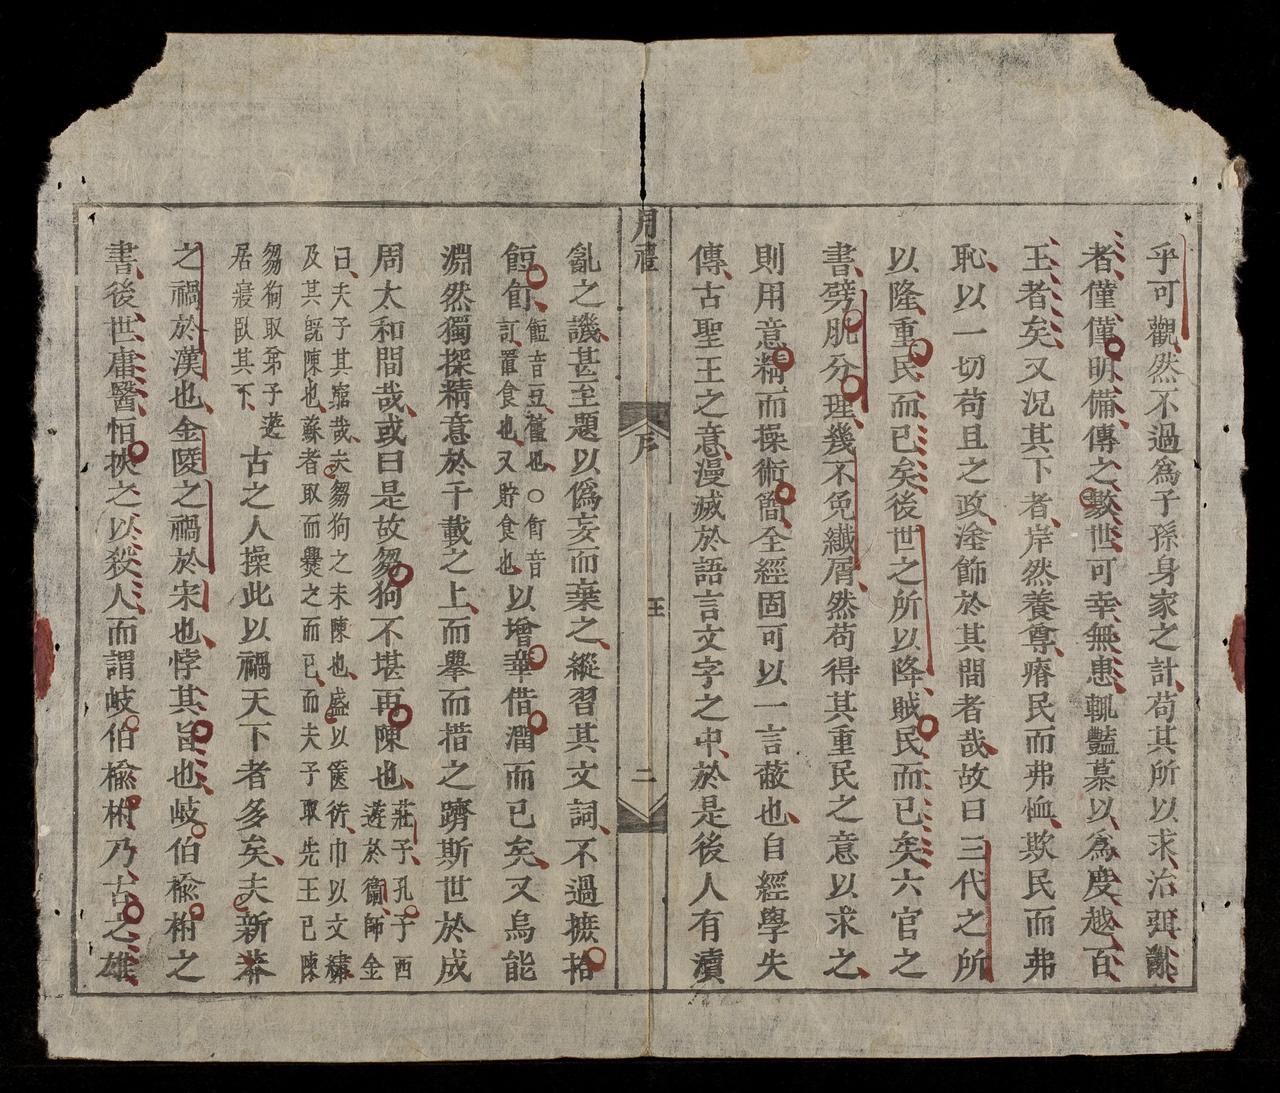 乎可觀然不過為子孫身家之計苟其所以求治弭亂
者僅僅明備傳之數世可幸無患輒豔慕以為度越百
王者矣又況其下者岸然養尊瘠民而弗恤欺民而弗
恥以一切苟且之政塗飾於其間者哉故曰三代之所
以隆重民而已矣後世之所以降賊民而已矣六官之
書劈肌分理幾不免纖屑然苟得其重民之意以求之
則用意精而操術簡全經固可以一言蔽也自經學失
傳古聖王之意漫滅於語言文字之中於是後人有瀆
周禮 序 王 二
亂之譏甚至題以偽妄而棄之縱習其文詞不過摭拾
飣餖音豆饾也○飣音
訂置食也又貯食也以增華借潤而已矣又烏能
淵然獨探精意於千載之上而舉而措之躋斯世於成
周太和間哉或曰是故芻狗不堪再陳也莊子孔子西
遊於衛師金
曰夫子其窮哉夫芻狗之未陳也盛以篋衍巾以文繡
及其既陳也蘇者取而爨之而已而夫子取先王已陳
芻狗取弟子遊
居寢臥其下古之人操此以禍天下者多矣夫新莽
之禍於漢也金陵之禍於宋也悖其旨也岐伯楡柎之
書後世庸醫恒挾之以殺人而謂岐伯楡柎乃古之雄